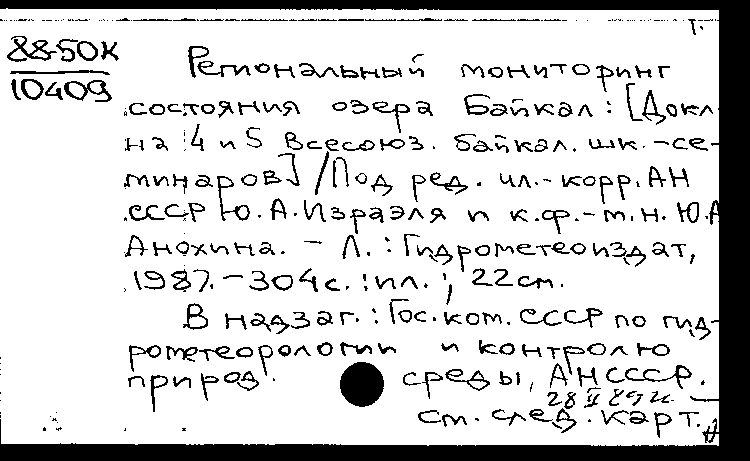 Т.
88-50К
10409
Региональный мониторинг
состояния озера Байкал: [Докл.
на 4 и 5 Всесоюз. байкал. шк.-се-
минаров] / Под ред. чл.-корр. АН
СССР Ю.А. Израэля и к.ф.-м.н. Ю.А
Анохина. – Л.: Гидрометеоиздат,
1987. – 304 с.: ил.; 22 см.
В надзаг.: Гос. ком. СССР по гид-
рометеорологии и контролю
природ. среды, АН СССР.
28 II 89
см. след. карт.